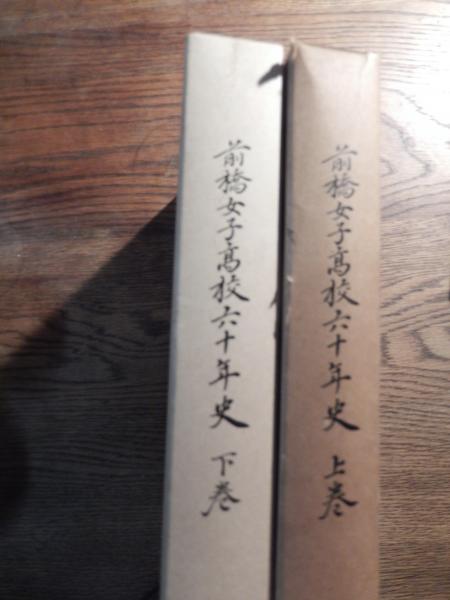 前橋女子高校六十年史 上巻
前橋女子高校六十年史 下巻